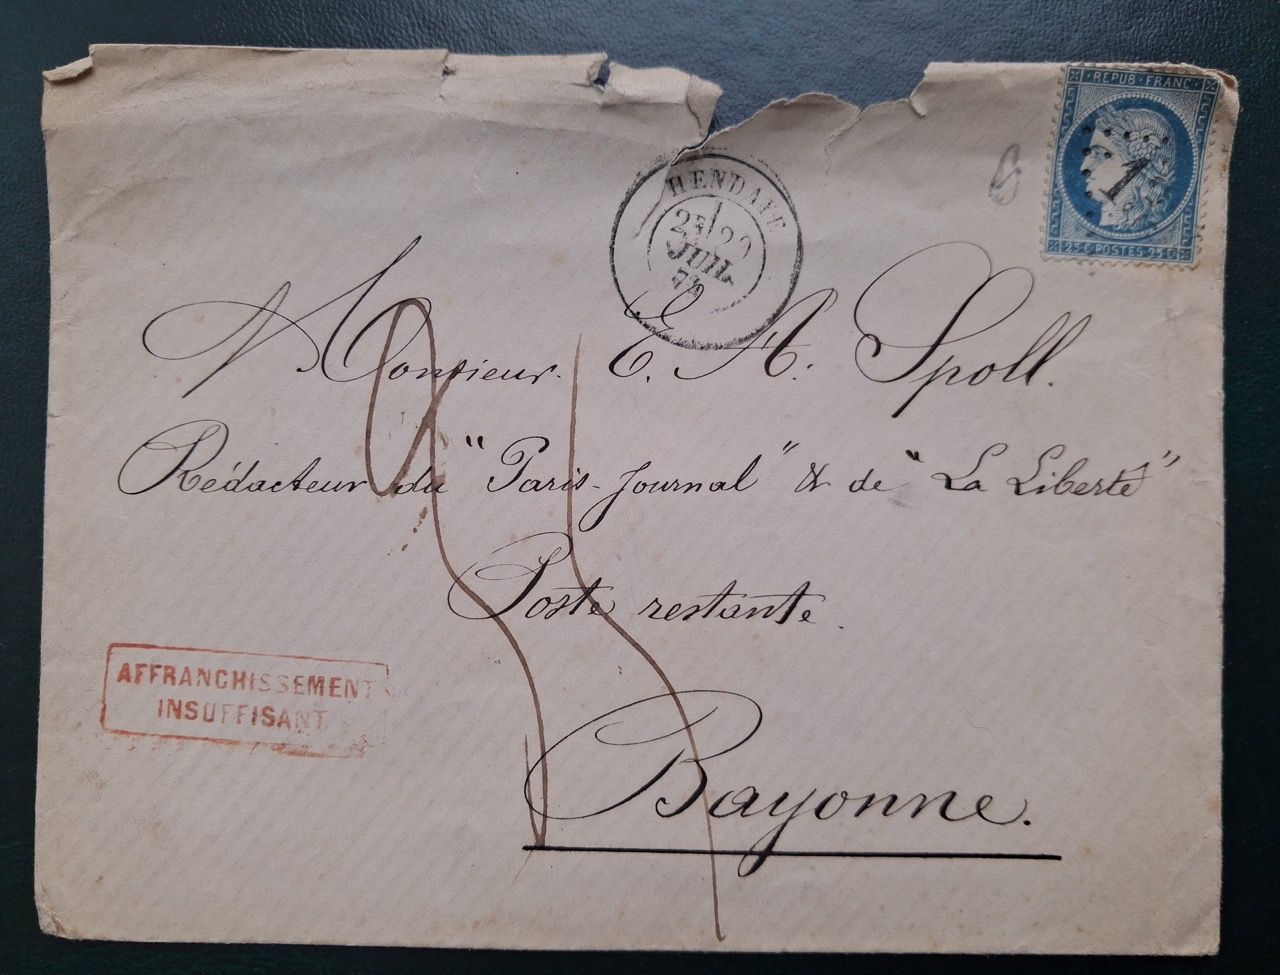 REPUB·FRANC·
25 C POSTES 25 C
HENDAYE
JUIL
Monsieur E. A. Spoll.
Rédacteur du "Paris-Journal" & de "La Liberté"
Poste restante.
AFFRANCHISSEMENT
INSUFFISANT
Bayonne.